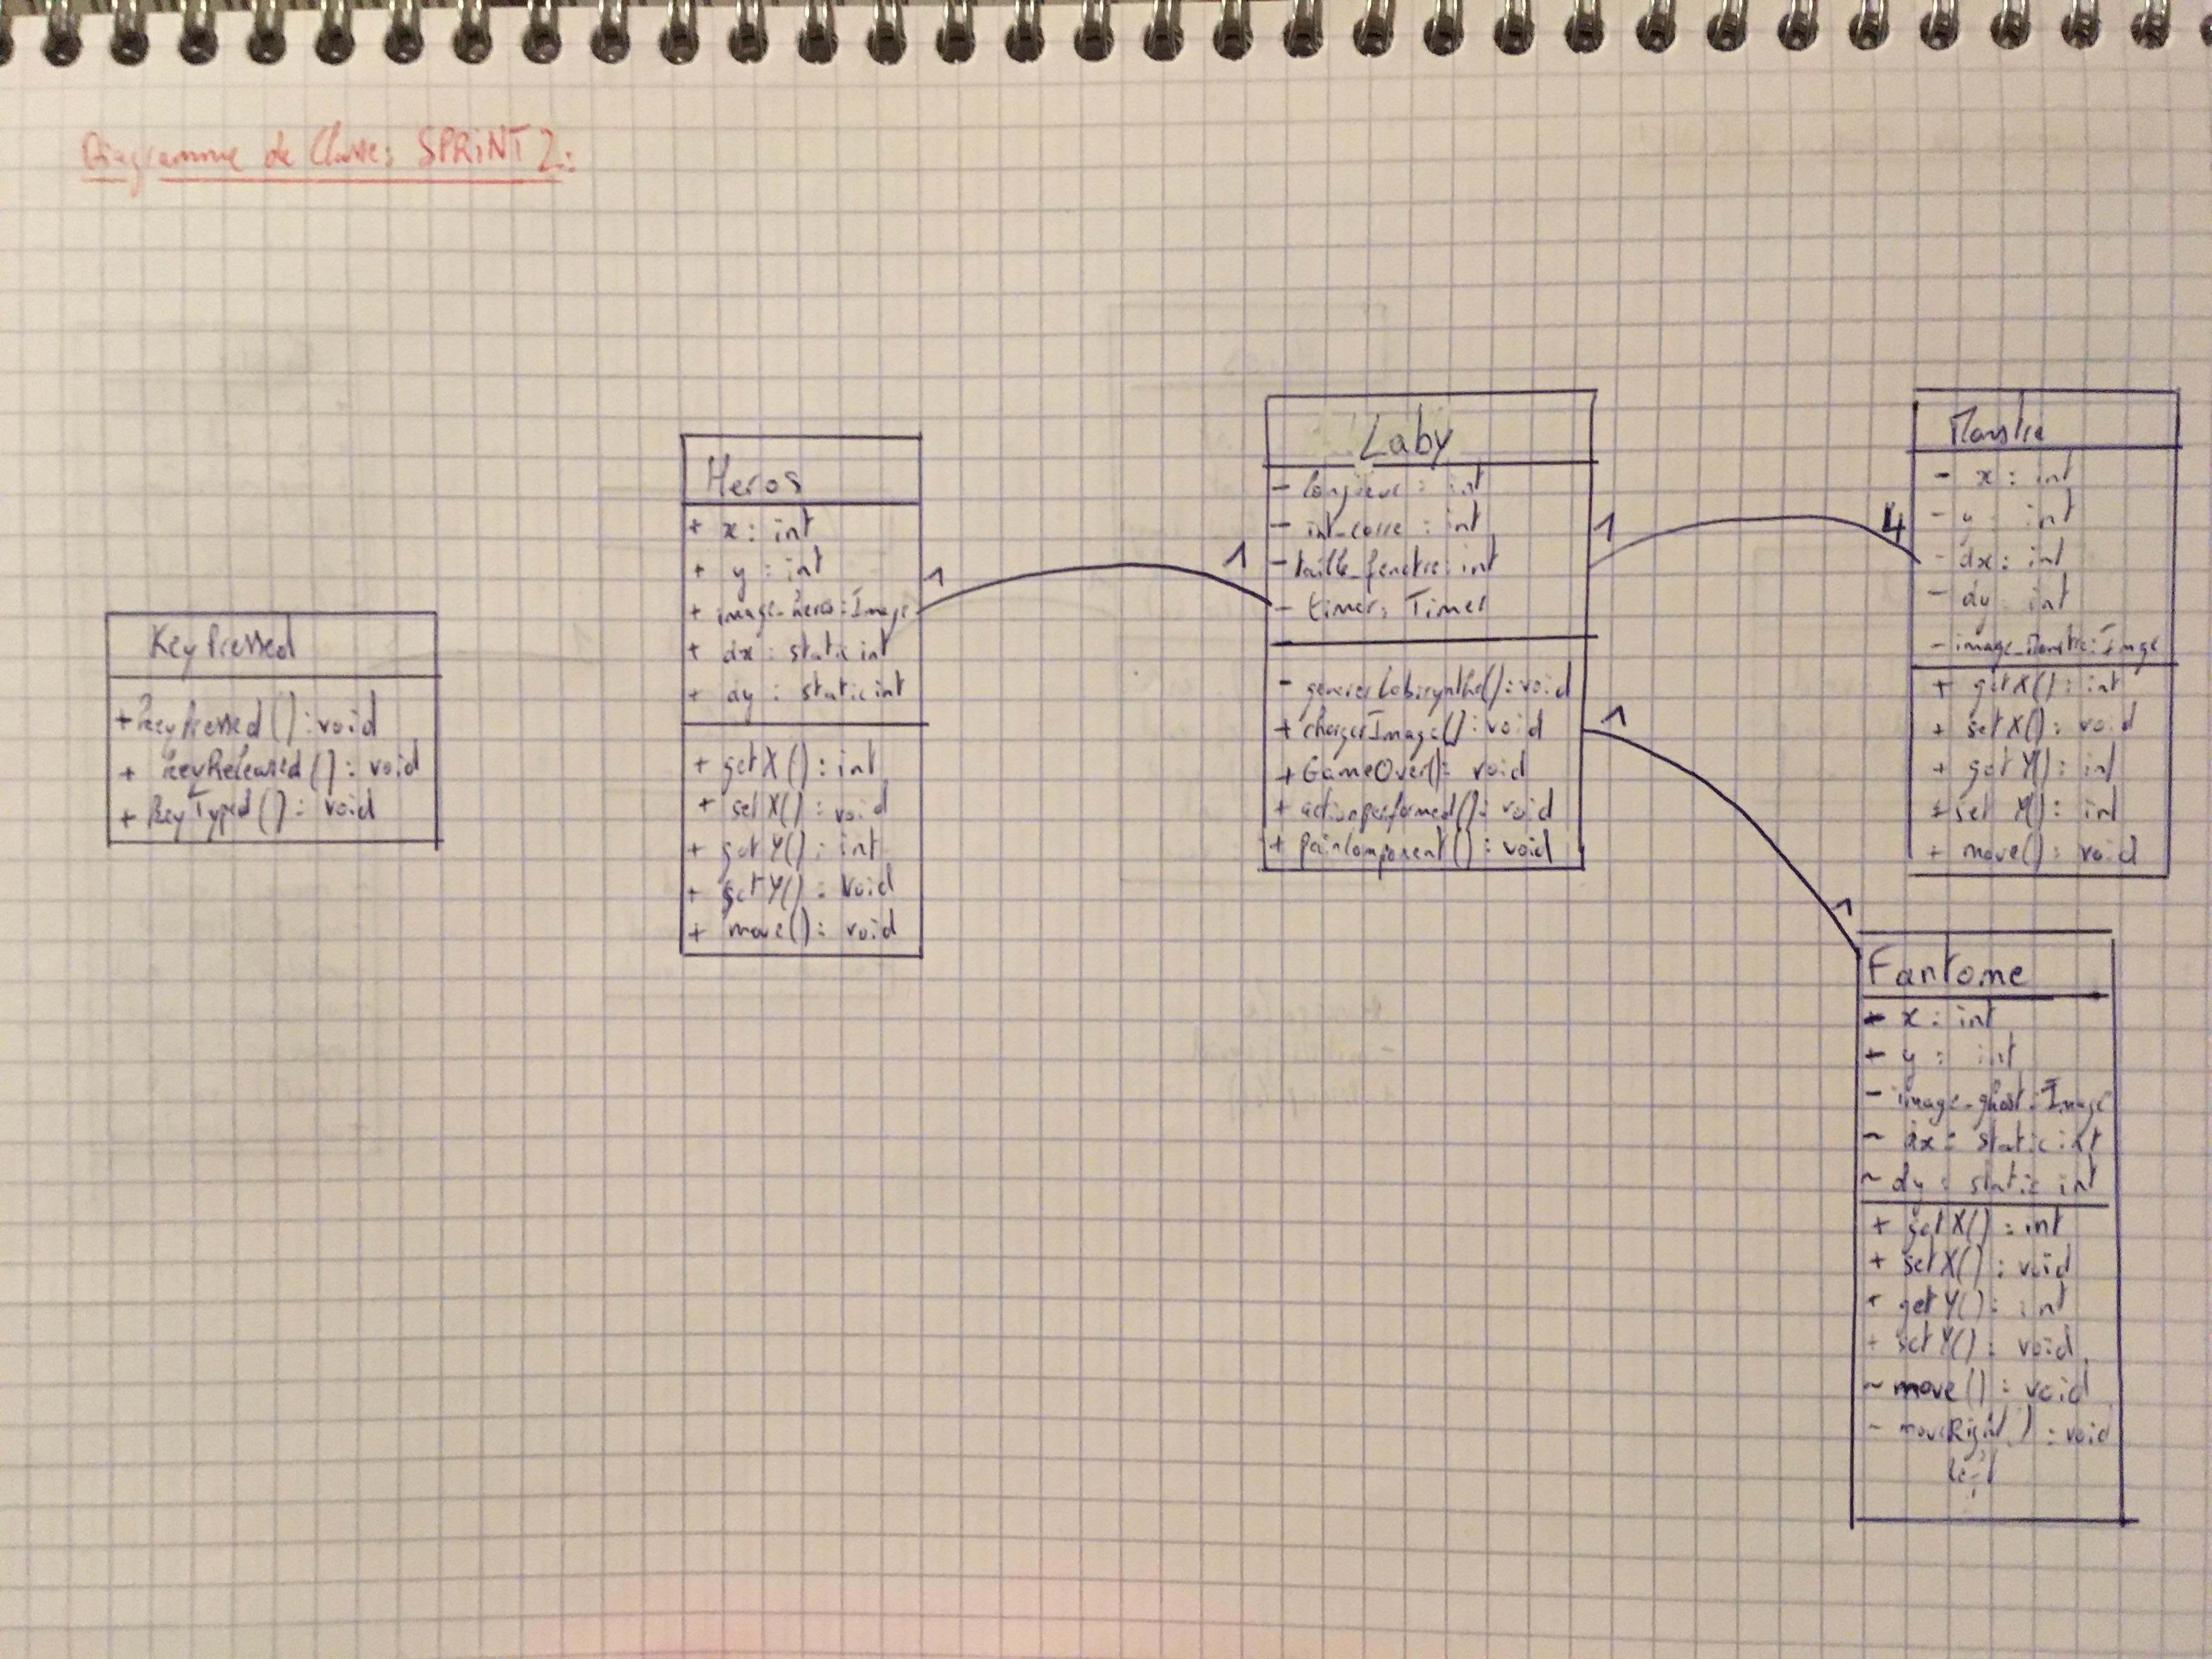 Diagramme de Classe: SPRiNT 2:
KeyPressed
+ KeyPressed() : void
+ KeyReleased() : void
+ KeyTyped() : void
Heros
+ x : int
+ y : int
+ image_heros : Image
+ dx : static int
+ dy : static int
+ getX() : int
+ setX() : void
+ getY() : int
+ setY() : void
+ move() : void
1
1
Laby
- longueur : int
- : int
- taille_fenetre : int
- timer : Timer
- genererLabirynthe() : void
+ chargerImage() : void
+ GameOver() : void
+ actionperformed() : void
+ painComponent() : void
1
4
1
1
Monstre
- x : int
- y : int
- dx : int
- dy : int
- image_Monstre : Image
+ getX() : int
+ setX() : void
+ getY() : int
+ set Y() : int
+ move() : void
Fantome
+ x : int
+ y : int
- image_ghost : Image
~ dx : static int
~ dy : static int
+ getX() : int
+ setX() : void
+ getY() : int
+ setY() : void
~ move() : void
~ moveRight() : void
left